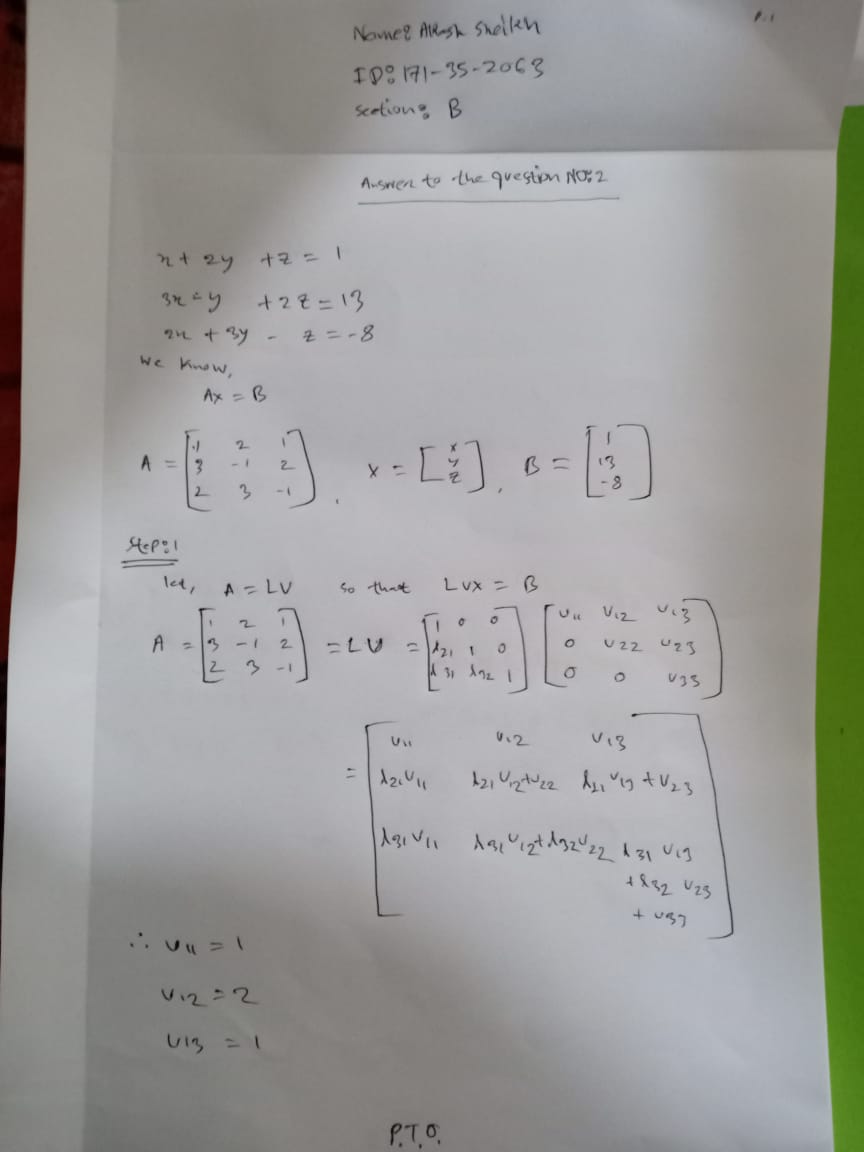 P.1
Name: Sheikh
ID: 171-35-2063
Section: B
Answer to the question NO: 2
x + 2y + z = 1
3x - y + 2z = 13
2x + 3y - z = -8
We know,
Ax = B
A = [1 2 1; 3 -1 2; 2 3 -1], X = [x; y; z], B = [1; 13; -8]
Step: 1
let, A = LU so that LUX = B
A = [1 2 1; 3 -1 2; 2 3 -1] = LU = [1 0 0; λ21 1 0; λ31 λ32 1] [U11 U12 U13; 0 U22 U23; 0 0 U33]
= [U11 U12 U13
λ21U11 λ21U12+U22 λ21U13+U23
λ31U11 λ31U12+λ32U22 λ31U13
+λ32U23
+U33]
∴ U11 = 1
U12 = 2
U13 = 1
P.T.O.